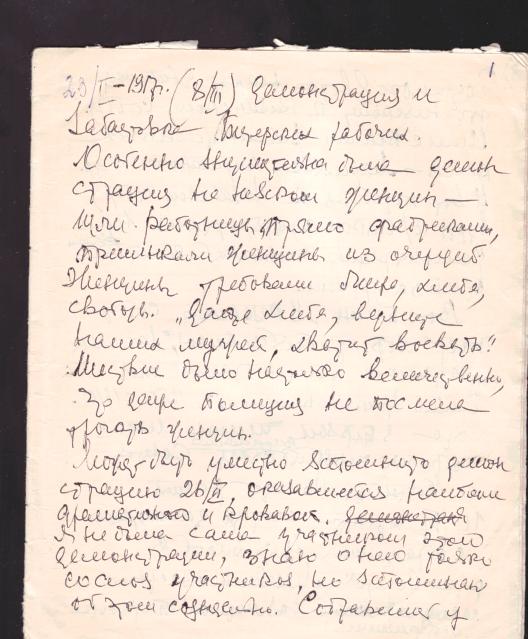 1
23/II – 1917г. (8/III) Демонстрация и
забастовка Питерских рабочих.
Особенно внушительна была демон
страция на Невском женщин —
шли работницы прямо с фабриками,
примыкали женщины из очередей.
Женщины требовали мира, хлеба,
свободы. „Дайте хлеба, верните
наших мужей, хватит воевать"!
Шествие было настолько величественно,
что даже полиция не посмела
трогать женщин.
Может быть уместно вспомнить демон
страцию 26/II, оказавшейся наиболее
драматичной и кровавой. демонстрация
Я не была сама участником этой
демонстрации, знаю о ней только
со слов участников, но вспоминаю
об этом Собравшись у